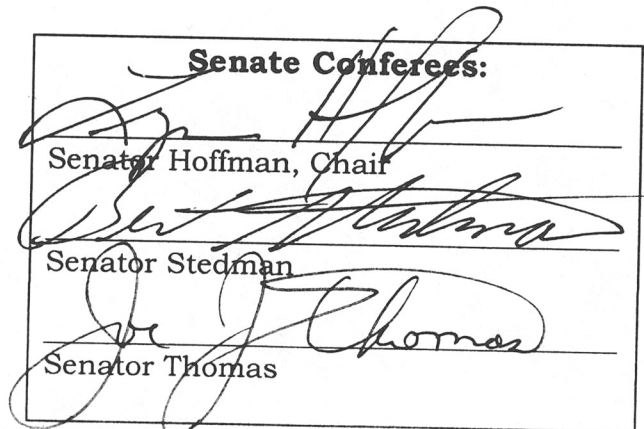 Senate Conferees:
Lyman Hoffman
Senator Hoffman, Chair
Bert Stedman
Senator Stedman
Joe J Thomas
Senator Thomas